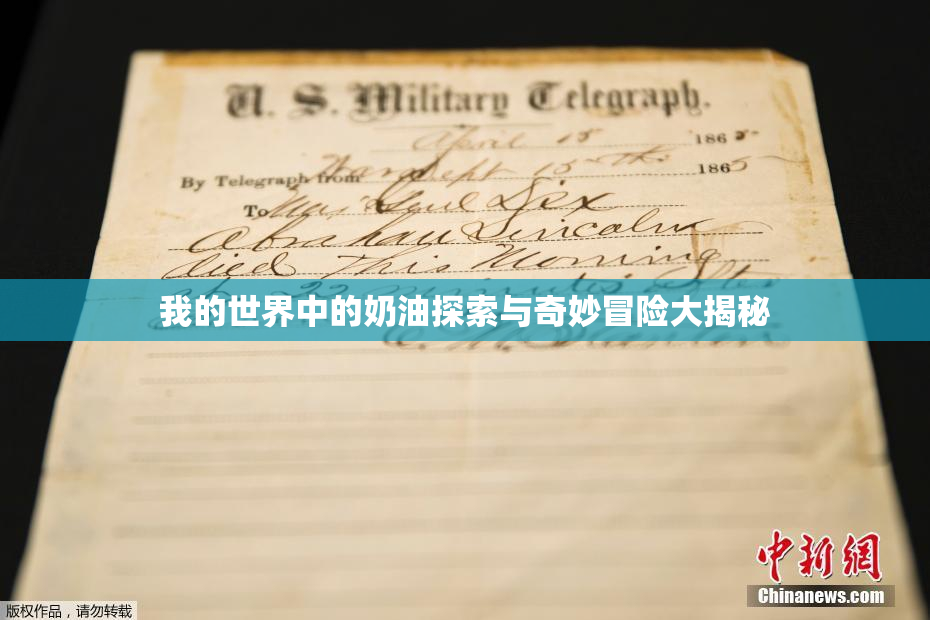 U. S. Military Telegraph.
April 15 1865
By Telegraph from War Dept 15th 1865
To Maj Genl Dix
Abraham Lincoln
died This Morning
at 22 minutes after
我的世界中的奶油探索与奇妙冒险大揭秘
E. M. Stanton
中新网
Chinanews.com
版权作品,请勿转载